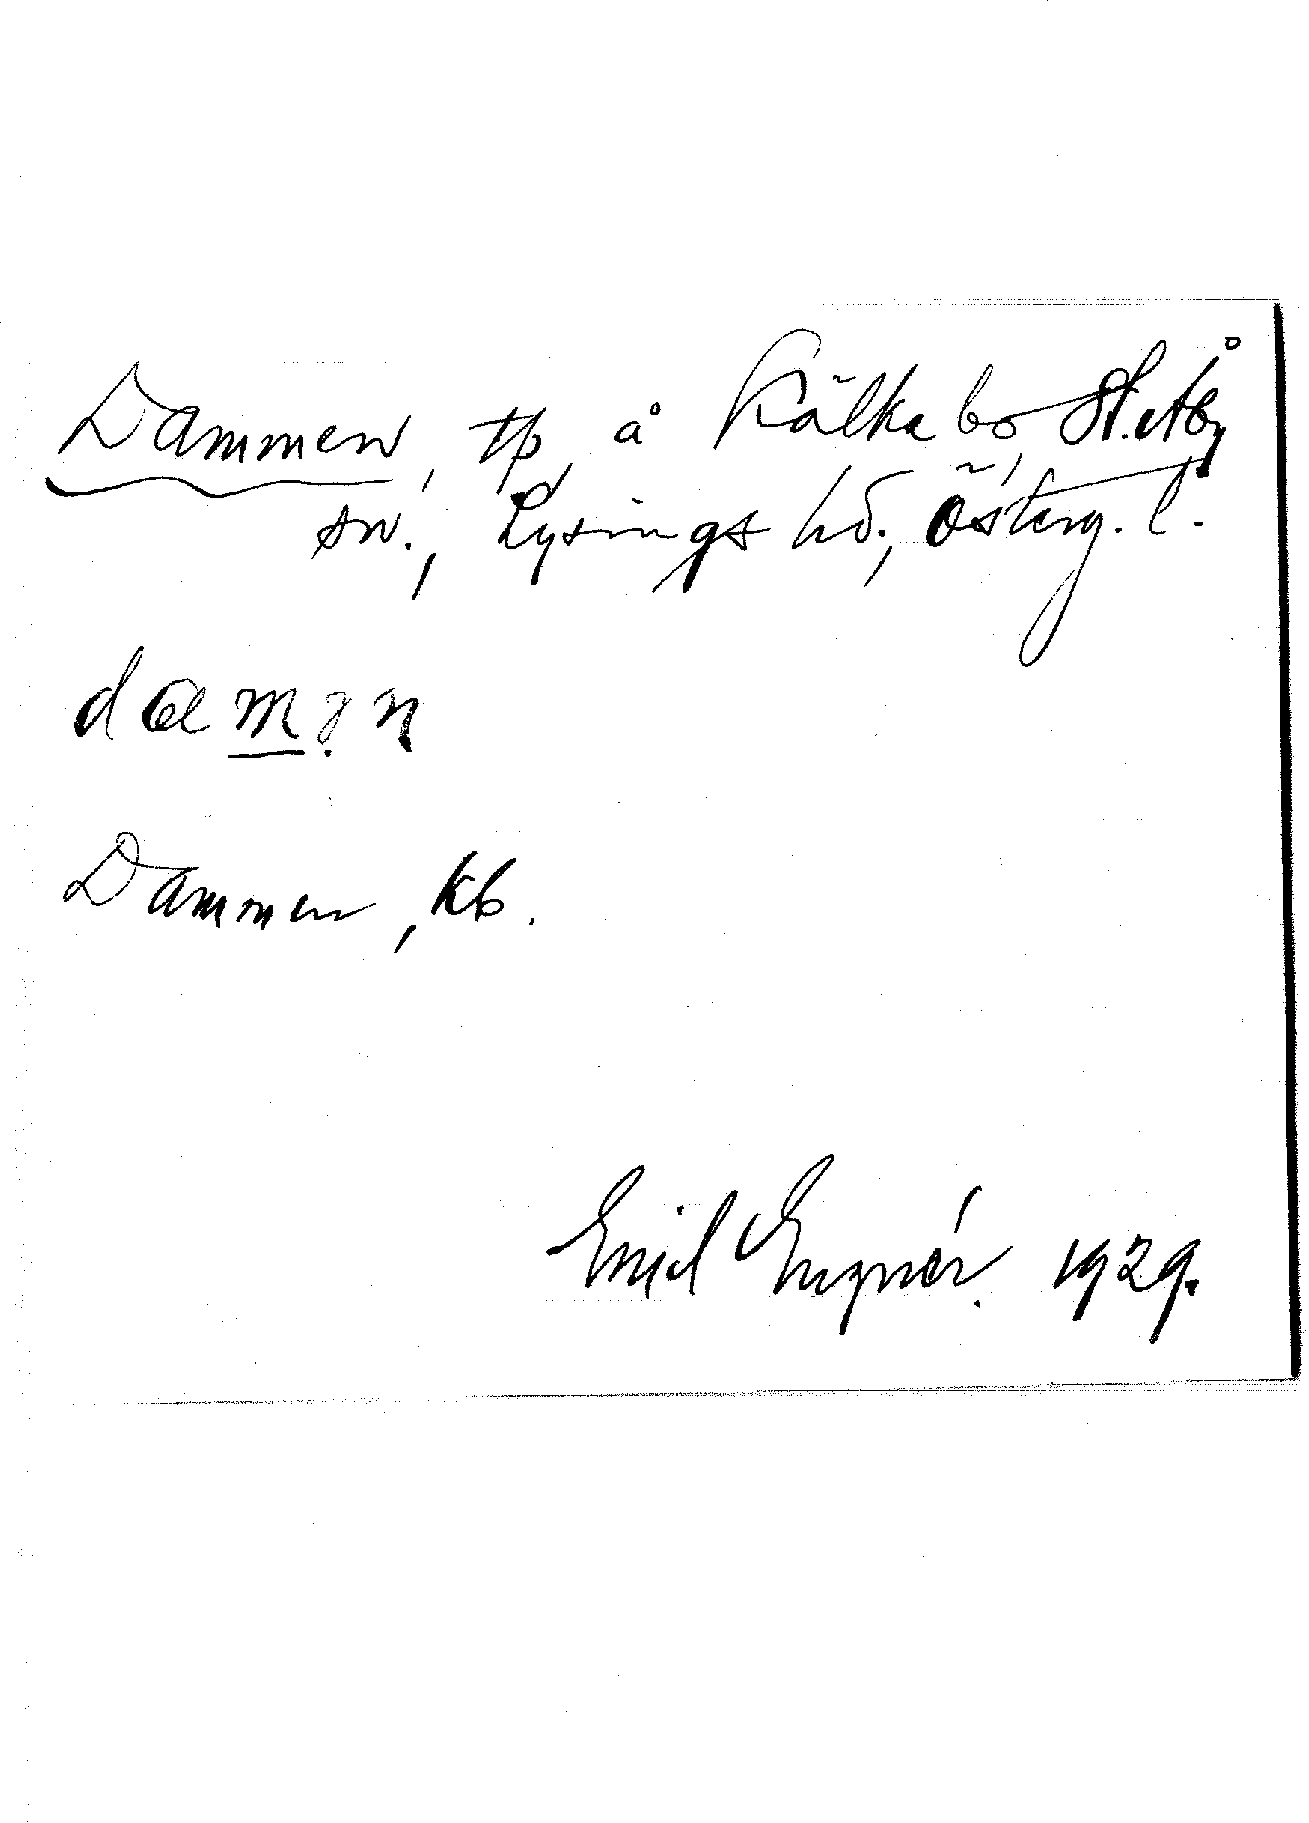 Dammen, tp, å Kälkebo, St. Åby
sn., Lysings hd., Österg. l.
damən
Dammen, kb.
Emil Engnér. 1929.